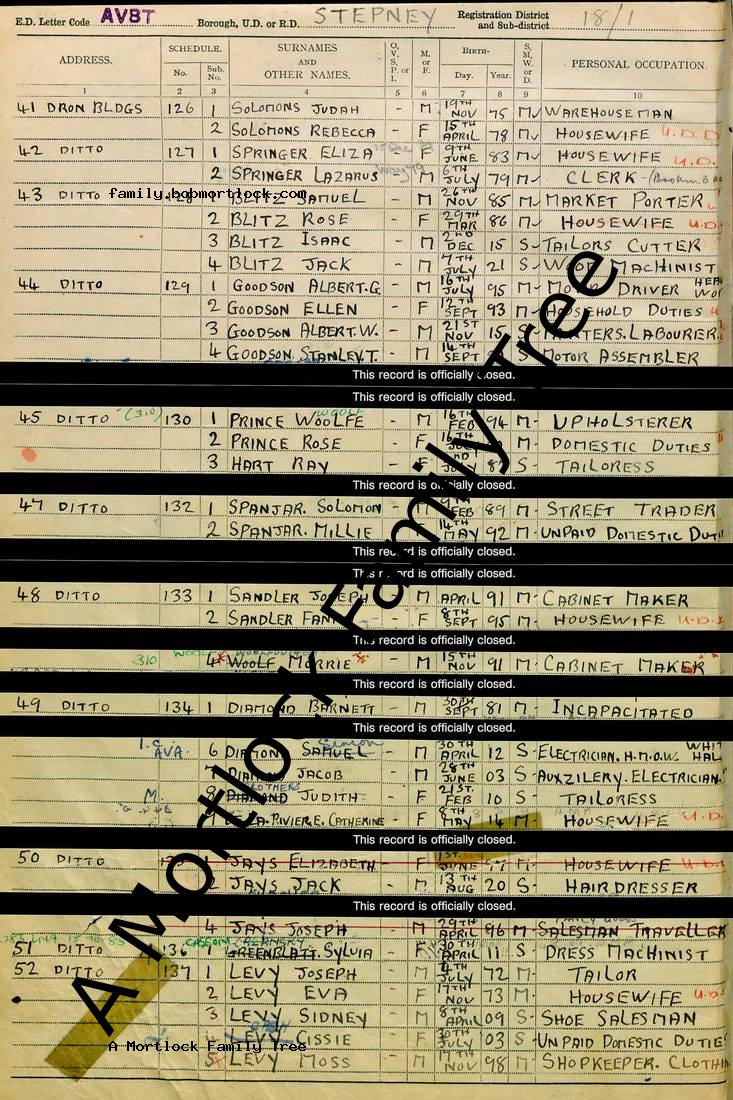 E.D. Letter Code AVBT Borough, U.D. or R.D. STEPNEY Registration District and Sub-district 18/1
ADDRESS. SCHEDULE. No. Sub. No. SURNAMES AND OTHER NAMES. O. V. S. P. or I. M. or F. BIRTH- Day. Year. S. M. W. or D. PERSONAL OCCUPATION.
1 2 3 4 5 6 7 8 9 10
41 DRON BLDGS 126 1 SOLOMONS JUDAH - M 19TH NOV 75 M WAREHOUSEMAN
2 SOLOMONS REBECCA - F 15TH APRIL 78 M HOUSEWIFE U.D.D
42 DITTO 127 1 SPRINGER ELIZA - F 9TH JUNE 83 M HOUSEWIFE U.D.
2 SPRINGER LAZARUS - M 6TH JULY 79 M CLERK
43 DITTO family.bobmortlock.com 128 1 BLITZ SAMUEL - M 26TH NOV 85 M MARKET PORTER
2 BLITZ ROSE - F 29TH MAR 86 M HOUSEWIFE U.D.
3 BLITZ ISAAC - M 2ND DEC 15 S TAILORS CUTTER
4 BLITZ JACK - M 7TH JULY 21 S WOOD MACHINIST
44 DITTO 129 1 GOODSON ALBERT.G - M 16TH JULY 95 M MOTOR DRIVER HEAV
2 GOODSON ELLEN - F 12TH SEPT 93 M HOUSEHOLD DUTIES
3 GOODSON ALBERT.W. - M 21ST NOV 15 S LABOURER
4 GOODSON STANLEY.T. - M 14TH SEPT S MOTOR ASSEMBLER
This record is officially closed.
This record is officially closed.
45 DITTO (310) 130 1 PRINCE WOOLFE WOOLF - M 16TH FEB 94 M UPHOLSTERER
2 PRINCE ROSE - F 16TH M DOMESTIC DUTIES
3 HART RAY - F S TAILORESS
This record is officially closed.
47 DITTO 132 1 SPANJAR. SOLOMON - M 9TH FEB 89 M STREET TRADER
2 SPANJAR. MILLIE - 14TH MAY 92 M UNPAID DOMESTIC DUTI
This record is officially closed.
This record is officially closed.
48 DITTO 133 1 SANDLER JOSEPH M APRIL 91 M CABINET MAKER
2 SANDLER - F 8TH SEPT 95 M HOUSEWIFE U.D.
This record is officially closed.
310 WOOLF 4 WOOLF MORRIE - M 15TH NOV 91 M CABINET MAKER
This record is officially closed.
49 DITTO 134 1 DIAMOND BARNETT - M 30TH SEPT 81 M INCAPACITATED
This record is officially closed.
AVA. 6 DIAMOND SAMUEL Simon - M 30TH APRIL 12 S ELECTRICIAN. H.M.O.W. WHIT HAL
7 DIAMOND JACOB - M 28TH JUNE 03 S AUXZILERY. ELECTRICIAN.
M. 8 DIAMOND JUDITH - F 21ST. FEB 10 S TAILORESS
DE LA RIVIERE. CATHERINE F 8TH MAY 14 M HOUSEWIFE U.D.
This record is officially closed.
50 DITTO 1 JAYS ELIZABETH - F 1ST. JUNE 97 M HOUSEWIFE U.D.
2 JAYS JACK - M 13TH AUG 20 S HAIRDRESSER
This record is officially closed.
4 JAYS JOSEPH - M 29TH APRIL 96 M SALESMAN TRAVELLER
51 DITTO 136 1 GREENBLATT. SYLVIA F 30TH APRIL 11 S DRESS MACHINIST
52 DITTO 137 1 LEVY JOSEPH - M 4TH JULY 72 M TAILOR
2 LEVY EVA - F 17TH NOV 73 M HOUSEWIFE U.D.
3 LEVY SIDNEY - M 8TH APRIL 09 S SHOE SALESMAN
LEVY CISSIE - F 30TH JULY 03 S UNPAID DOMESTIC DUTIE
A Mortlock Family Tree
5 LEVY MOSS - M 14TH NOV 98 M SHOPKEEPER. CLOTHI
A Mortlock Family Tree